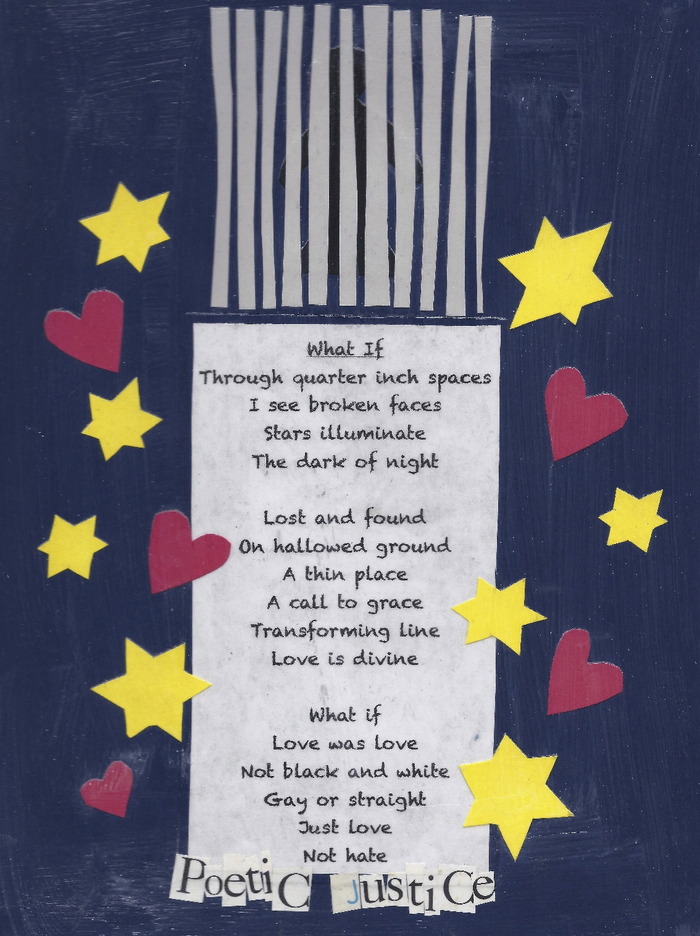 What If
Through quarter inch spaces
I see broken faces
Stars illuminate
The dark of night
Lost and found
On hallowed ground
A thin place
A call to grace
Transforming line
Love is divine
What if
Love was love
Not black and white
Gay or straight
Just love
Not hate
Poetic Justice